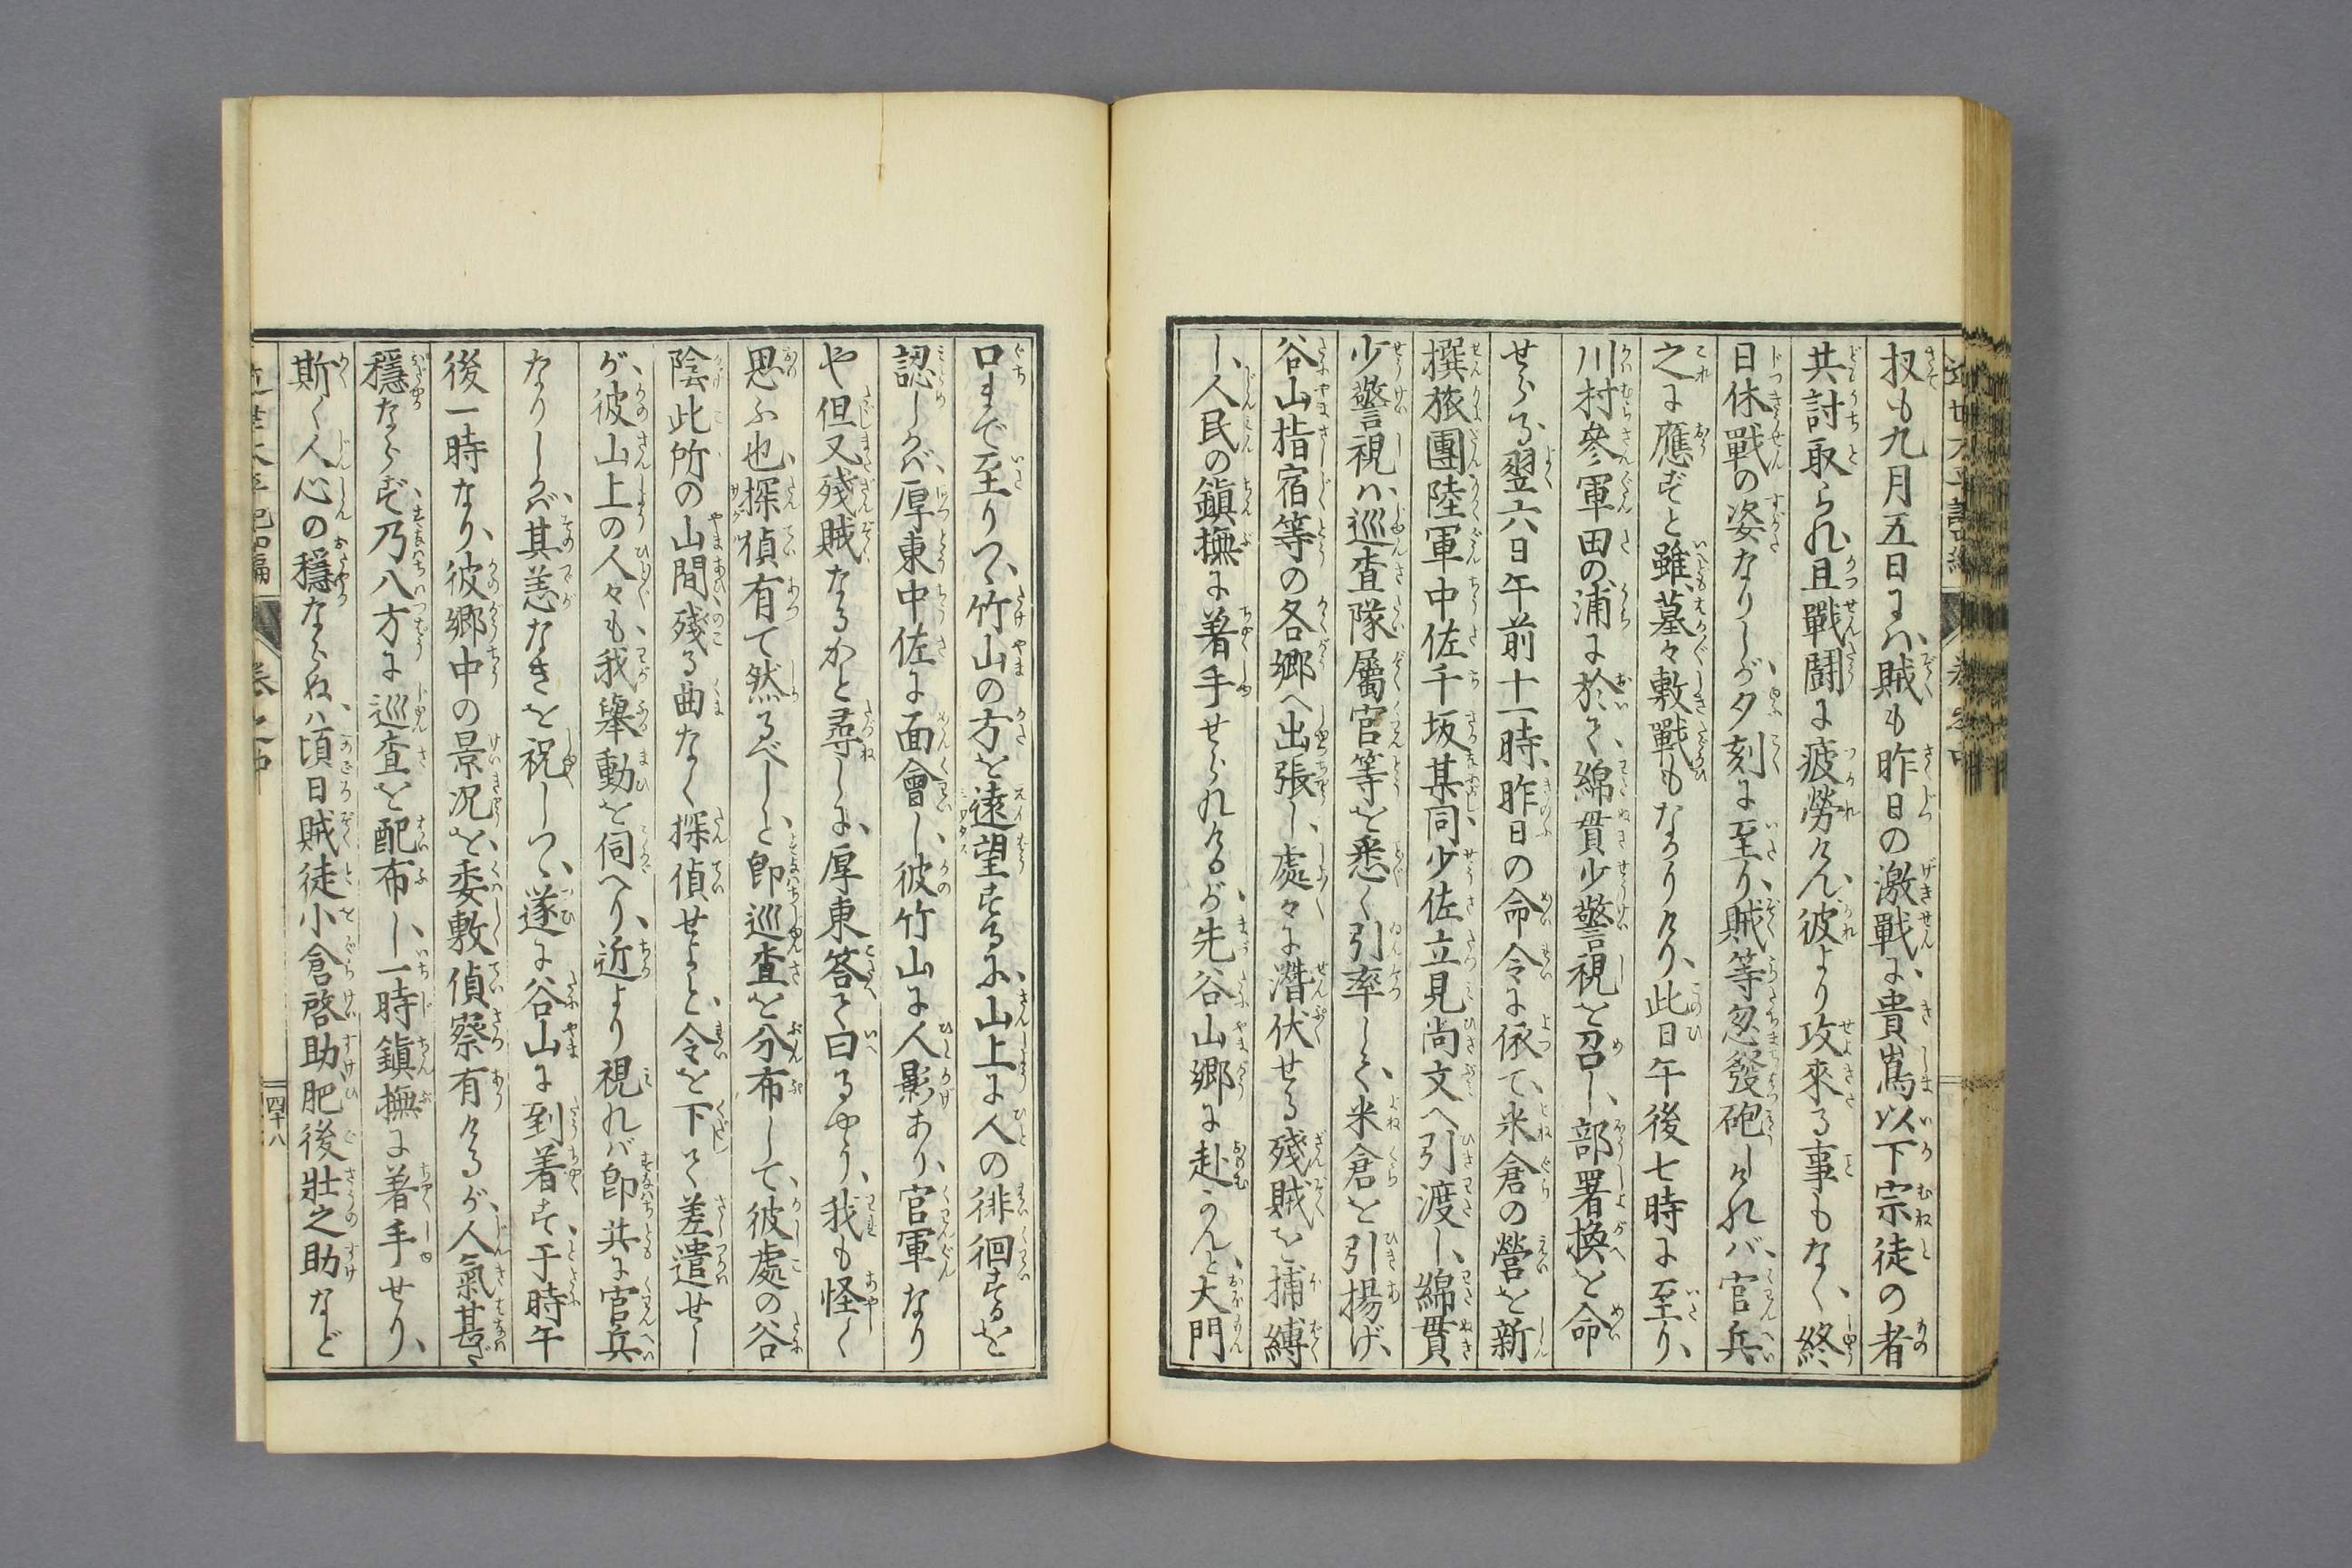 扨も九月五日には、賊も昨日の激戰に、貴嶌以下宗徒の者
共討取られ、且戰鬪に疲勞けん、彼より攻來る事もなく、終
日休戰の姿なりしが、夕刻に至り、賊等忽發砲しければ、官兵
之に應ずと雖、墓々敷戰もなかりけり、此日午後七時に至り、
川村參軍田の浦に於て、綿貫少警視を召し、部署換を命
せらる、翌六日午前十一時、昨日の命令に依て、米倉の營を新
撰旅團陸軍中佐千坂某同少佐立見尚文へ引渡し、綿貫
少警視ハ巡査隊屬官等を悉く引率して、米倉を引揚げ、
谷山指宿等の各郷へ出張し、處々に潜伏せる殘賊を捕縛
し、人民の鎭撫に着手せられけるが、先谷山郷に赴かんと、大門
口まで至りつゝ、竹山の方を遠望するに、山上に人の徘徊するを
認しかば、厚東中佐に面會し、彼竹山に人影あり、官軍なり
や但又殘賊なるかと尋しに、厚東答て曰るやう、我も怪く
思ふ也、探偵有て然るべしと、卽巡査を分布して、彼處の谷
陰此所の山間殘る曲なく探偵せよと、令を下して差遣せし
が、彼山上の人々も我舉動を伺へり、近より視れバ卽共に官兵
なりしかば、其恙なきを祝しつゝ、遂に谷山に到着す、于時午
後一時なり、彼郷中の景况を、委敷偵察有けるが、人氣甚だ
穩ならず、乃八方に巡査を配布し、一時鎭撫に着手せり、
斯く人心の穩ならぬハ、頃日賊徒小倉啓助肥後壯之助など
卷之中
四十八